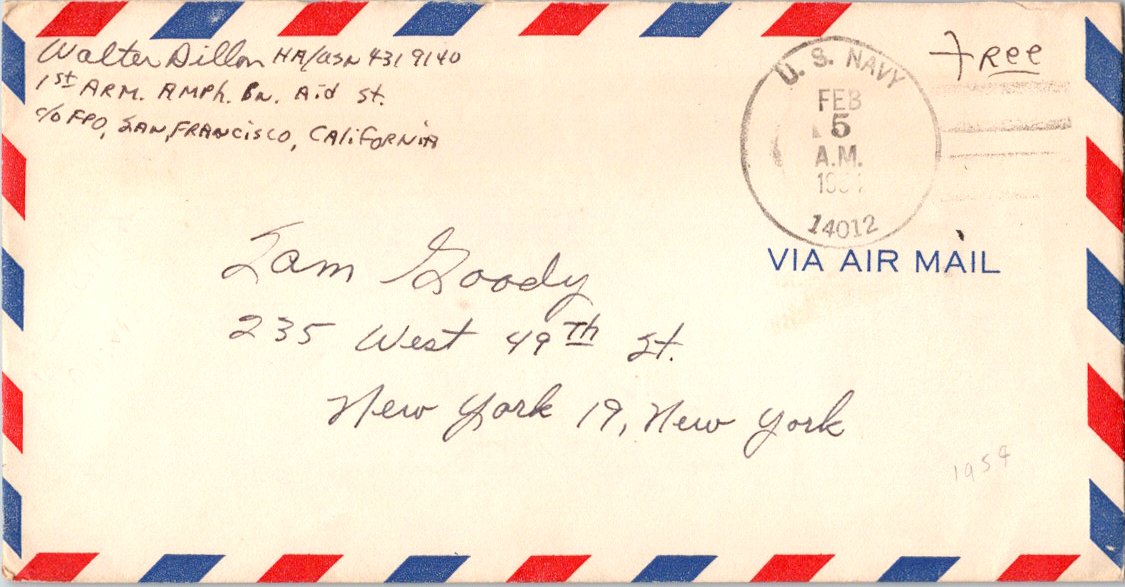 Walter Dillon HA/USN 431 9140
1st ARM. AMPh. Bn. Aid St.
c/o FPO, SAN, FRANCiSCO, CALiFORNiA
Free
U. S. NAVY
FEB
5
A.M.
14012
VIA AIR MAIL
Sam Goody
235 West 49th St.
New York 19, New York
1954